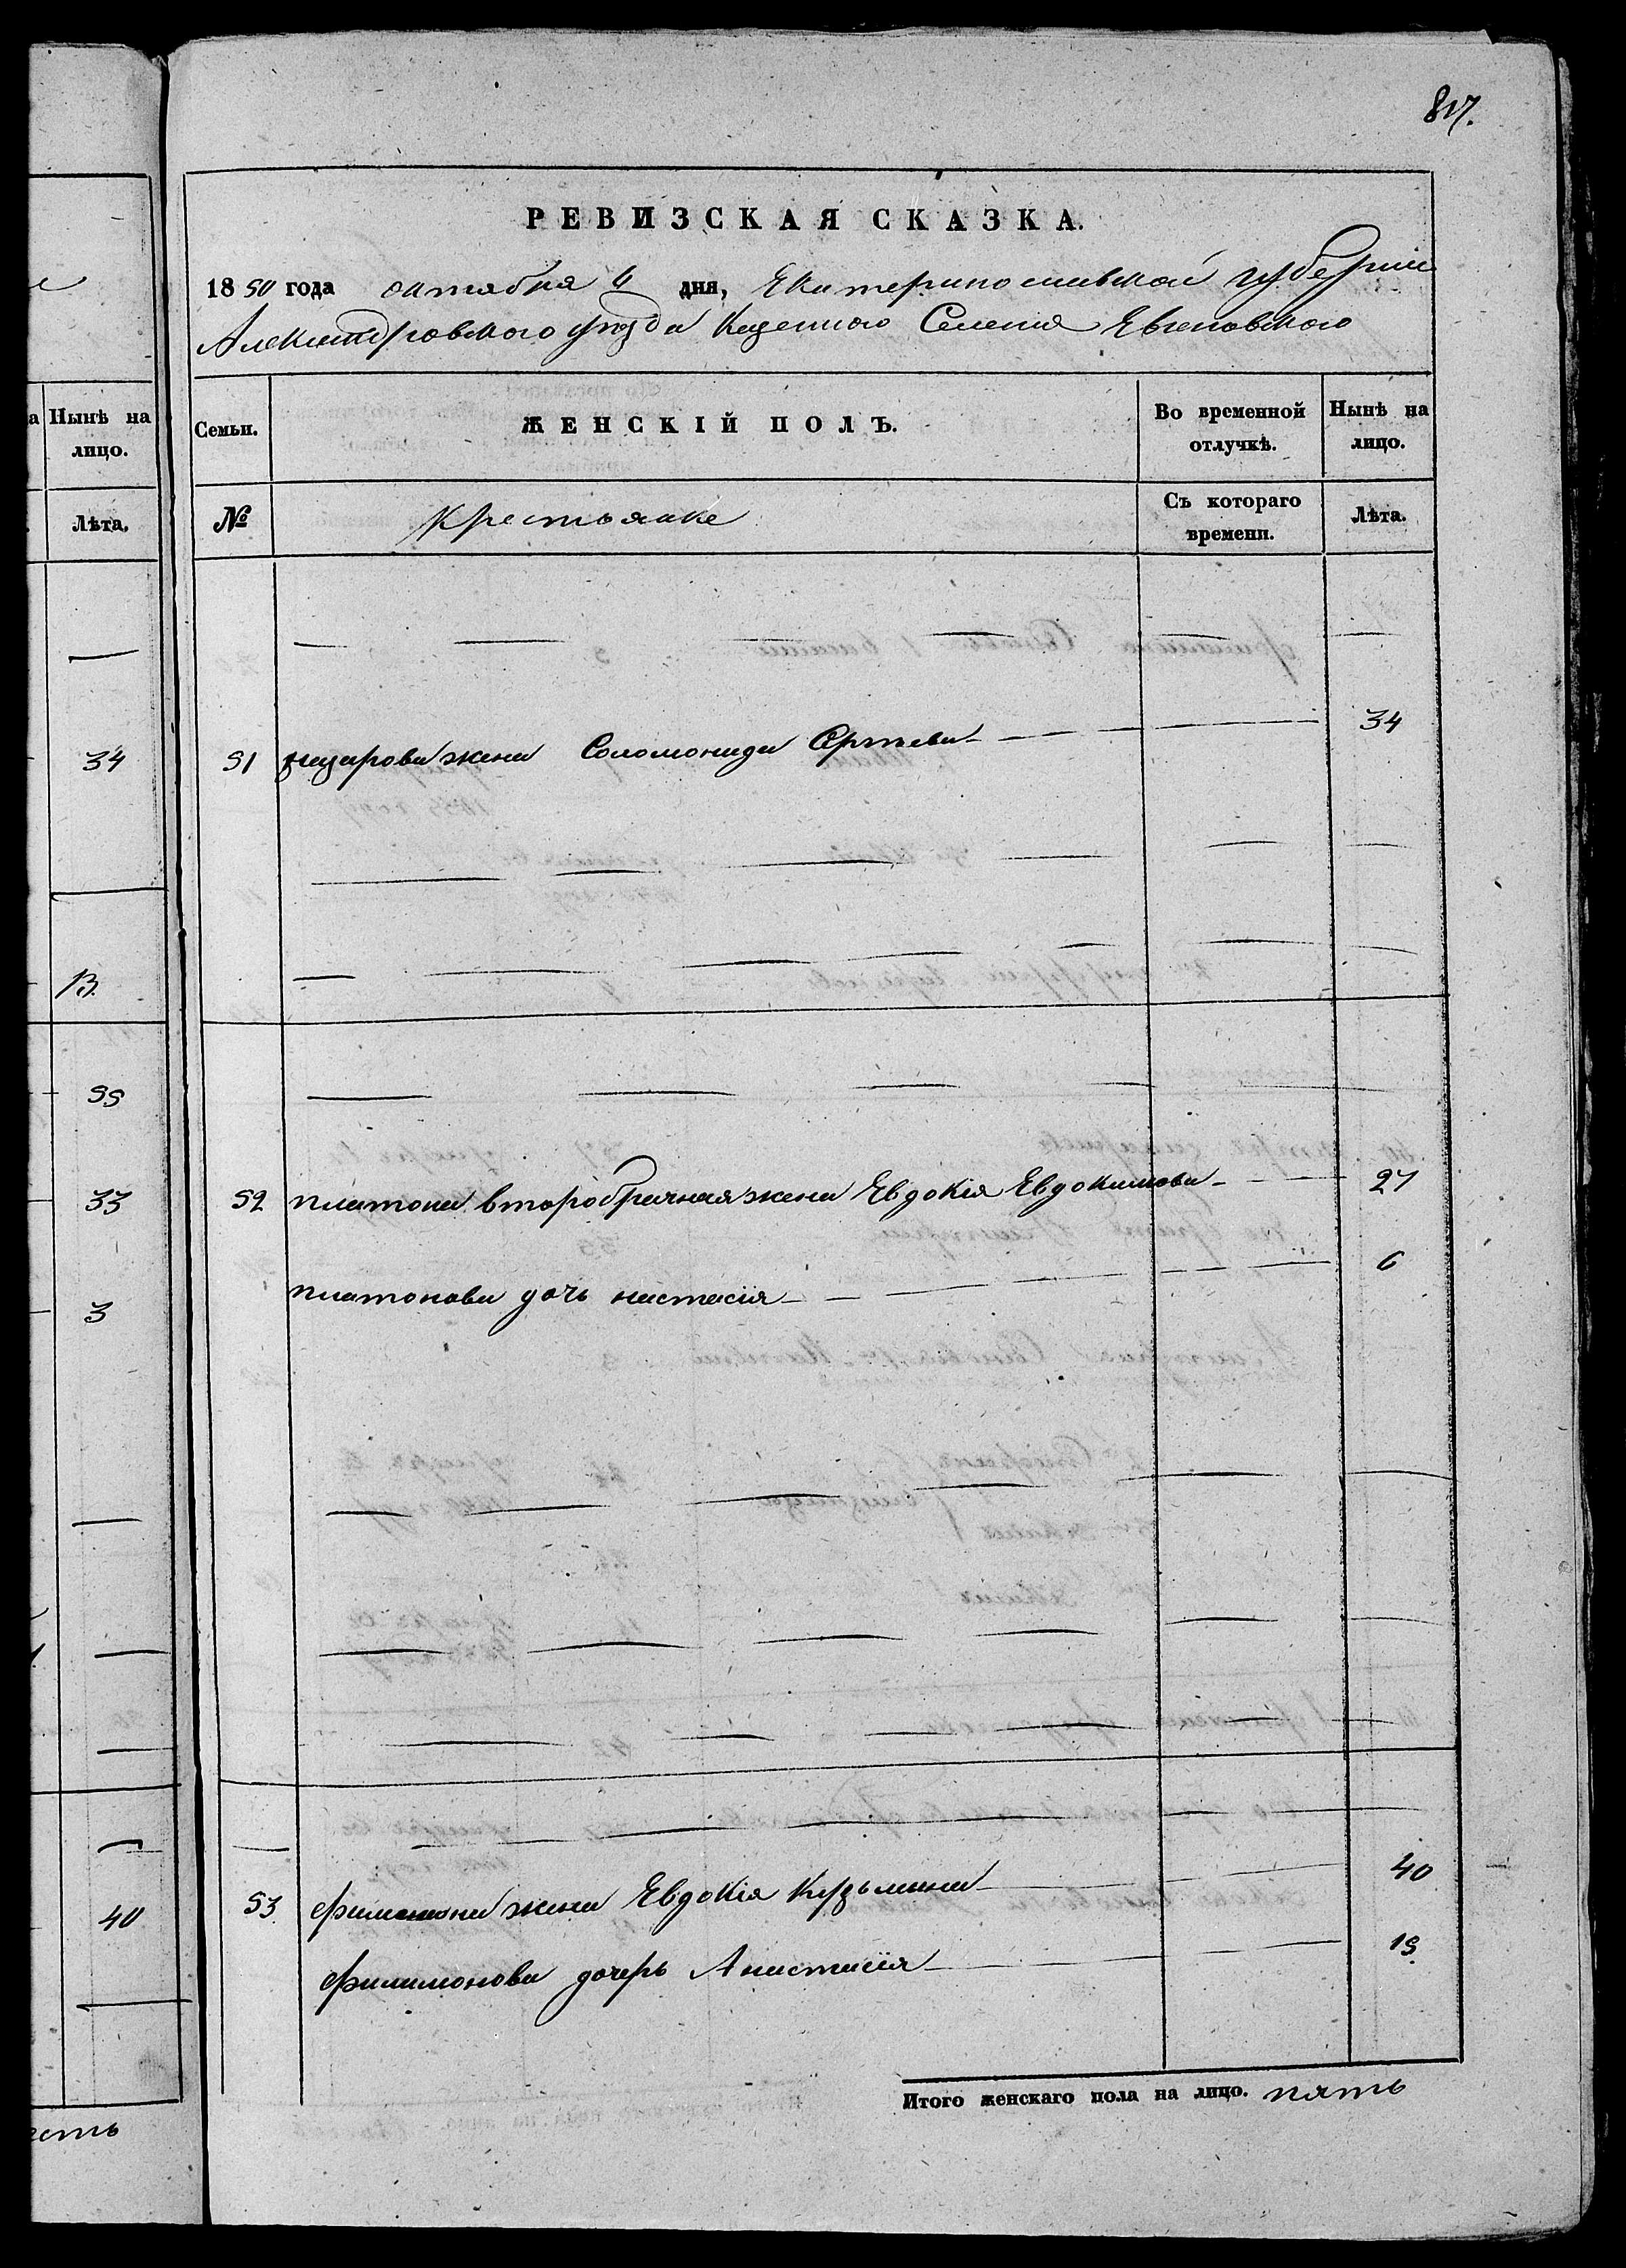 817.
РЕВИЗСКАЯ СКАЗКА.
1850 года октября 4 дня, Екатеринославской губерніи
Александровского уѣзда Казенного Селения Евгеновского
Нынѣ на лицо.
Лѣта.
34
13
55
33
3
40
Семьи.
ЖЕНСКІЙ ПОЛЪ.
Во временной отлучкѣ.
Нынѣ на лицо.
№
крестьянке
Съ котораго времени.
Лѣта.
51 назарова жена Соломонида Сергѣева 34
52 платона второбрачная жена Евдокія Евдокимова 27
платонова дочь настасія 6
53 филимона жена Евдокія Кузьмина 40
филимонова дочерь Анастасія 15
Итого женскаго пола на лицо. пять